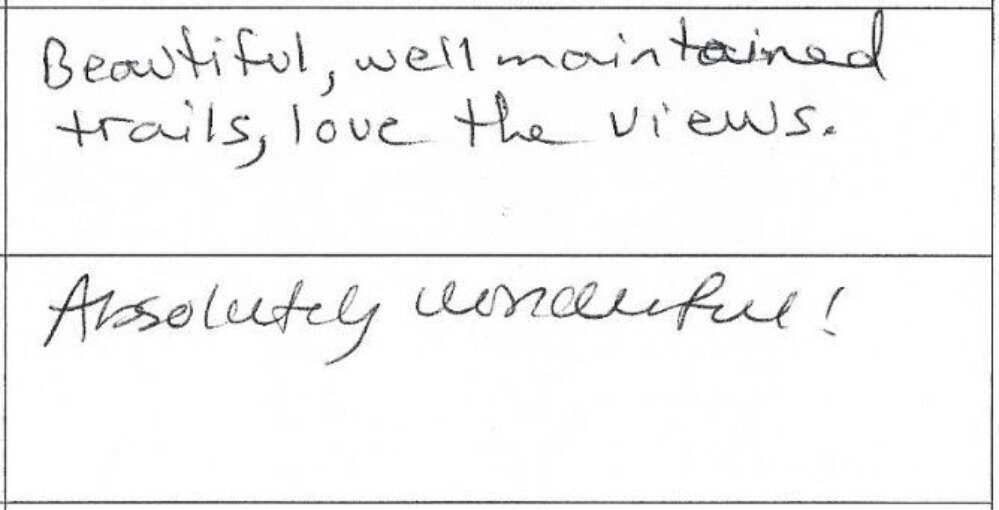 Beautiful, well maintained
trails, love the views.
Absolutely wonderful!